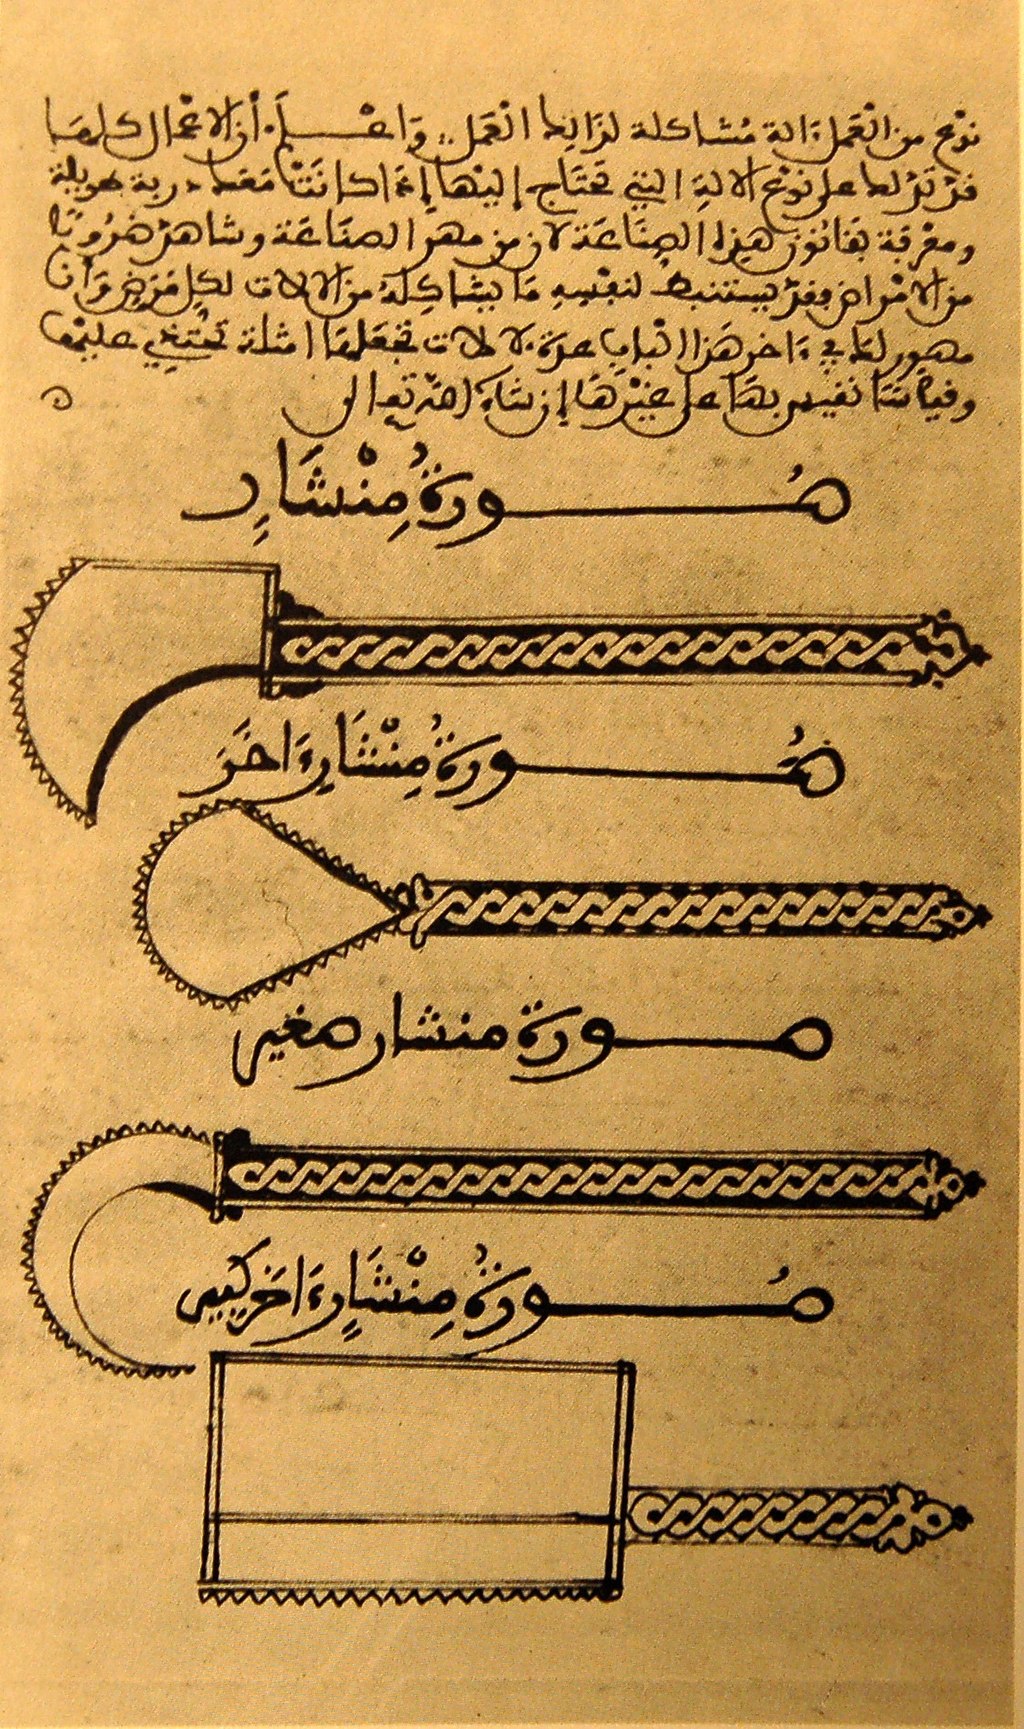 نوع من العمل ءالة مشاكلة لذالك العمل واعــلم أن الاعمال كلها
قد تدلك على نوع الالة التي تحتاج إليها إنما كانت معك دربة طويلة
ومعرفة بفانون هذه الصناعة لان من مهر الصناعة وشاهد ضروبا
من الامراض وفد يستنبط لنفسه ما يشاكله من الالات لكل مرض وأنا
مصور لك في ءاخر هذا الباب عدة ءالات تجعلها امثلة تحتذي عليها
وفياسا تفيس بها على غيرها إن شاء الله تعالى
صُــورةُ مِنْشَارٍ
صُــورةُ مِنْشَارٍ ءَاخَرَ
صــورة منشار صغير
صُــورةُ مِنْشَارٍ ءَاخَر كبير